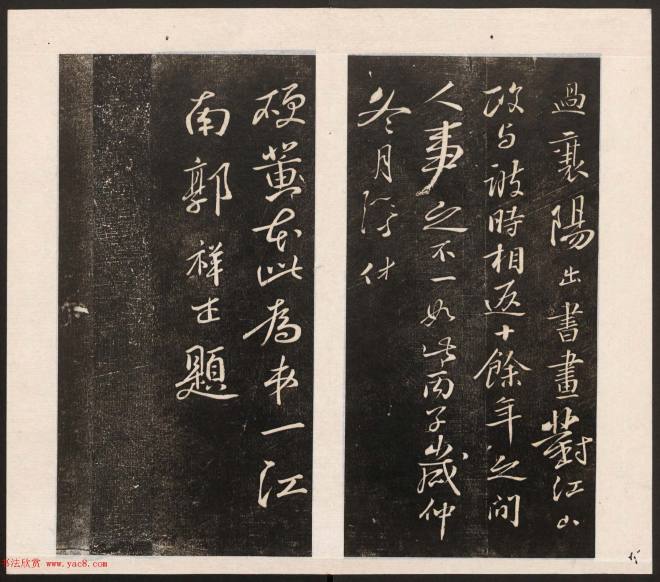 過襄陽出書畫對江山
政与彼時相返十餘年之間
人事之不一如此丙子歲仲
冬月
硬黃本此為第一江
南郭祥正題
书法欣赏 www.yac8.com